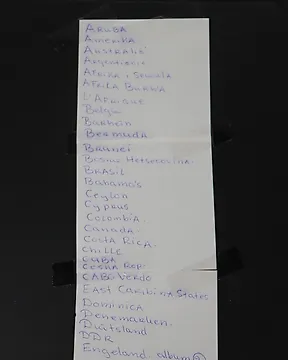 ARUBA
Amerika
Australië
Argentinië
Afrika
Afrika
L'Afrique
België
Bahrein
Bermuda
Brunei
Bosnie
BRASIL
Bahama's
Ceylon
Cyprus
Colombia.
Canada.
COSTA RICA.
CHILLE
CUBA
CABO VERDO
EAST Caribina States
Dominica
Denemarken.
Duitsland
DDR
Engeland. album